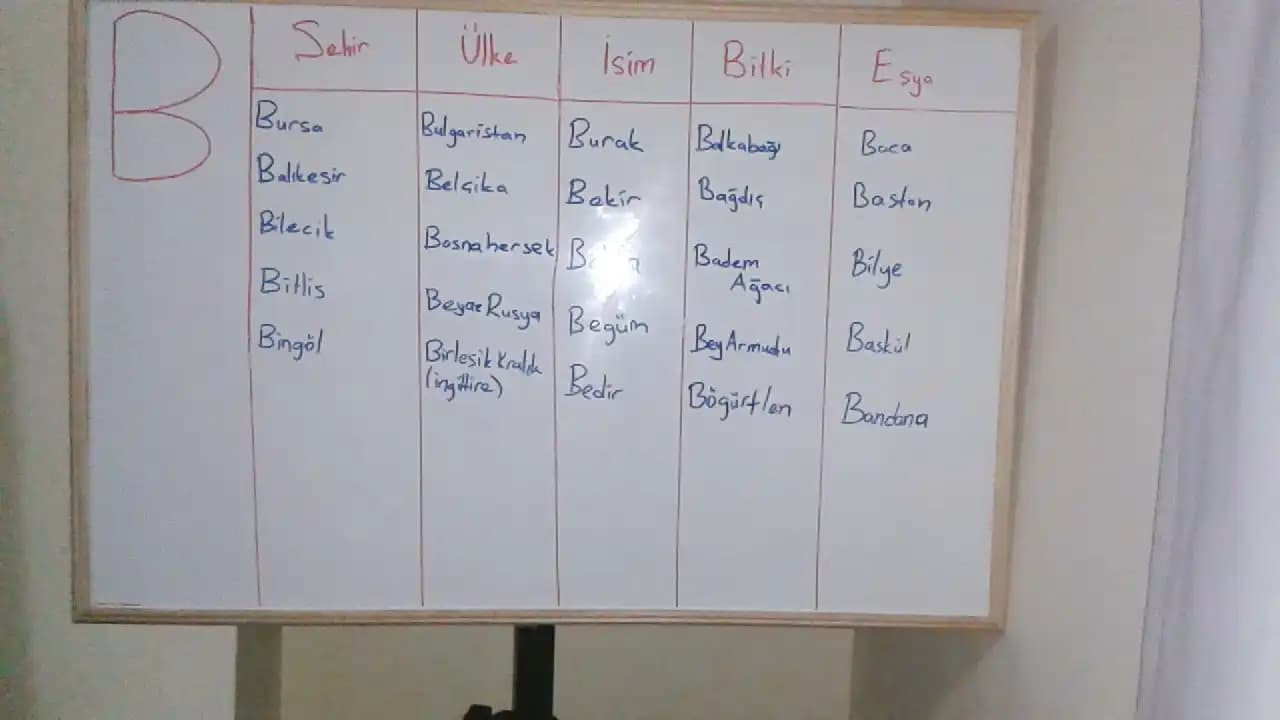 B
Şehir Ülke İsim Bitki Eşya
Bursa Bulgaristan Burak Balkabağı Baca
Balıkesir Belçika Bekir Bağdış Baston
Bilecik Bosnahersek Badem Bilye
Ağacı
Bitlis Beyaz Rusya Begüm Bey Armudu Baskül
Bingöl Birleşik Krallık Bedir Böğürtlen Bandana
(ingiltire)